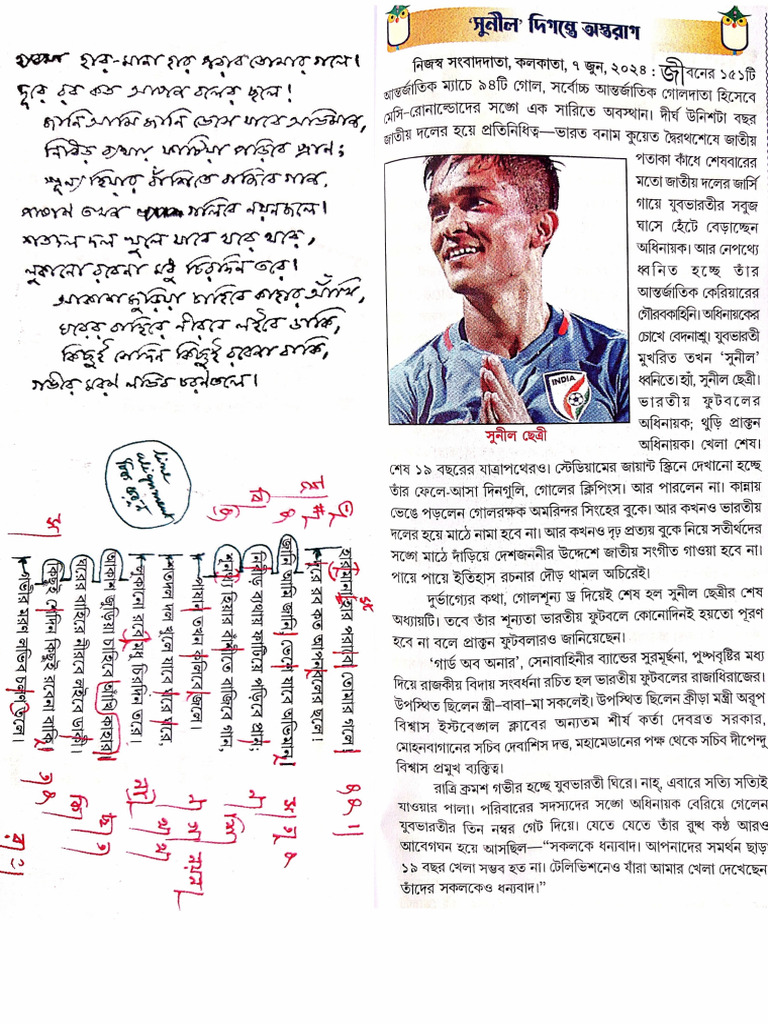 হার-মানা হার পরাব তোমার গলে।
দূরে রব কত আপন বলের ছলে!
জানি আমি জানি ভেসে যাবে অভিমান,
নিবিড় ব্যথায় ফাটিয়া পড়িবে প্রাণ;
শূন্য হিয়ার বাঁশিতে বাজিবে গান,
পাষাণ তখন গলিবে নয়নজলে।
শতদল দল খুলে যাবে থরে থরে,
লুকানো রবেনা মধু চিরদিন তরে।
আকাশ জুড়িয়া চাহিবে কাহার আঁখি,
ঘরের বাহিরে নীরবে লইবে ডাকি,
কিছুই সেদিন কিছুই রবেনা বাকি,
গভীর মরণ লভিব চরণতলে।
line
alignment
ঠিক করুন
হারমানা হার পরাবো তোমার গলে
দূরে রব কত আপনবলের ছলে!
জোনি আমি জানি ভেশে যাবে অভিমান
নিবীড় ব্যথায় ফাটিয়ে পড়িবে প্রান;
শূনথ্য হিয়ার বাঁশীতে বাজিবে গান,
পাযান তখন কলিবে জলে।
শতদল দল খুলে যাবে ধরে ধরে,
লুকানো রবে মধু চিরদিন তরে।
আকাশ জুড়িয়া চাহিবে আঁখি কাহার
ঘরের বাহিরে নীরবে লইবে ডাকী।
কিছুই শেদিন কিছুই রবেনা বাকি
গভীর মরণ লভিব চরণ তলে।
'সুনীল' দিগন্তে অস্তরাগ
নিজস্ব সংবাদদাতা, কলকাতা, ৭ জুন, ২০২৪ : জীবনের ১৫১টি
আন্তর্জাতিক ম্যাচে ৯৪টি গোল, সর্বোচ্চ আন্তর্জাতিক গোলদাতা হিসেবে
মেসি-রোনাল্ডোদের সঙ্গে এক সারিতে অবস্থান। দীর্ঘ উনিশটা বছর
জাতীয় দলের হয়ে প্রতিনিধিত্ব—ভারত বনাম কুয়েত দ্বৈরথশেষে জাতীয়
পতাকা কাঁধে শেষবারের
মতো জাতীয় দলের জার্সি
গায়ে যুবভারতীর সবুজ
ঘাসে হেঁটে বেড়াচ্ছেন
অধিনায়ক। আর নেপথ্যে
ধ্বনিত হচ্ছে তাঁর
আন্তর্জাতিক কেরিয়ারের
গৌরবকাহিনি। অধিনায়কের
চোখে বেদনাশ্রু। যুবভারতী
মুখরিত তখন 'সুনীল'
ধ্বনিতে। হ্যাঁ, সুনীল ছেত্রী।
ভারতীয় ফুটবলের
অধিনায়ক; থুড়ি প্রাক্তন
অধিনায়ক। খেলা শেষ।
INDIA
সুনীল ছেত্রী
শেষ ১৯ বছরের যাত্রাপথেরও। স্টেডিয়ামের জায়ান্ট স্ক্রিনে দেখানো হচ্ছে
তাঁর ফেলে-আসা দিনগুলি, গোলের ক্লিপিংস। আর পারলেন না। কান্নায়
ভেঙে পড়লেন গোলরক্ষক অমরিন্দর সিংহের বুকে। আর কখনও ভারতীয়
দলের হয়ে মাঠে নামা হবে না। আর কখনও দৃঢ় প্রত্যয় বুকে নিয়ে সতীর্থদের
সঙ্গে মাঠে দাঁড়িয়ে দেশজননীর উদ্দেশে জাতীয় সংগীত গাওয়া হবে না।
পায়ে পায়ে ইতিহাস রচনার দৌড় থামল অচিরেই।
দুর্ভাগ্যের কথা, গোলশূন্য ড্র দিয়েই শেষ হল সুনীল ছেত্রীর শেষ
অধ্যায়টি। তবে তাঁর শূন্যতা ভারতীয় ফুটবলে কোনোদিনই হয়তো পূরণ
হবে না বলে প্রাক্তন ফুটবলারও জানিয়েছেন।
'গার্ড অব অনার', সেনাবাহিনীর ব্যান্ডের সুরমূর্ছনা, পুষ্পবৃষ্টির মধ্য
দিয়ে রাজকীয় বিদায় সংবর্ধনা রচিত হল ভারতীয় ফুটবলের রাজাধিরাজের।
উপস্থিত ছিলেন স্ত্রী-বাবা-মা সকলেই। উপস্থিত ছিলেন ক্রীড়া মন্ত্রী অরূপ
বিশ্বাস ইস্টবেঙ্গল ক্লাবের অন্যতম শীর্ষ কর্তা দেবব্রত সরকার,
মোহনবাগানের সচিব দেবাশিস দত্ত, মহামেডানের পক্ষ থেকে সচিব দীপেন্দু
বিশ্বাস প্রমুখ ব্যক্তিত্ব।
রাত্রি ক্রমশ গভীর হচ্ছে যুবভারতী ঘিরে। নাহ্, এবারে সত্যি সত্যিই
যাওয়ার পালা। পরিবারের সদস্যদের সঙ্গে অধিনায়ক বেরিয়ে গেলেন
যুবভারতীর তিন নম্বর গেট দিয়ে। যেতে যেতে তাঁর রুদ্ধ কণ্ঠ আরও
আবেগঘন হয়ে আসছিল—"সকলকে ধন্যবাদ। আপনাদের সমর্থন ছাড়া
১৯ বছর খেলা সম্ভব হত না। টেলিভিশনেও যাঁরা আমার খেলা দেখেছেন
তাঁদের সকলকেও ধন্যবাদ।"